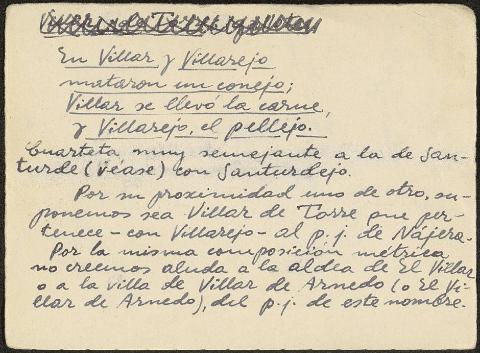 En Villar y Villarejo
mataron un conejo;
Villar se llevó la carne,
y Villarejo, el pellejo.
Cuarteta muy semejante a la de San-
turde (véase) con Santurdejo.
Por su proximidad uno de otro, su-
ponemos sea Villar de Torre que per-
tenece - con Villarejo - al p. j. de Nájera.
Por la misma composición métrica
no creemos aluda a la aldea de El Villar
o a la villa de Villar de Arnedo (o El Vi-
llar de Arnedo), del p. j. de este nombre.